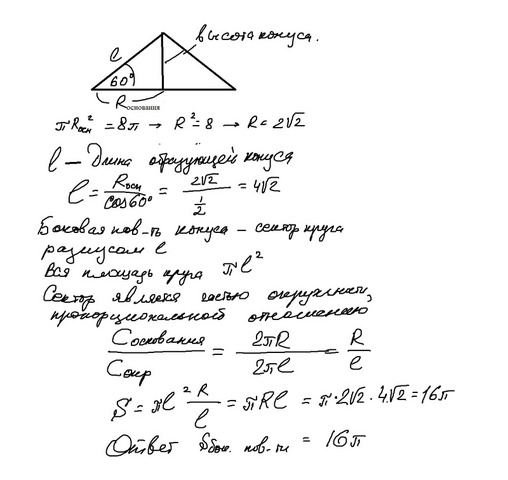 высота конуса.
l
60°
R основания
πRосн² = 8π → R² = 8 → R = 2√2
l – Длина образующей конуса
l = Rосн / cos60° = 2√2 / (1/2) = 4√2
Боковая пов-ть конуса – сектор круга
радиусом l
Вся площадь круга πl²
Сектор является частью окружности,
пропорциональной отношению
Cоснования / Cокр = 2πR / 2πl = R / l
S = πl² R / l = πRl = π·2√2·4√2 = 16π
Ответ Sбок. пов-ти = 16π